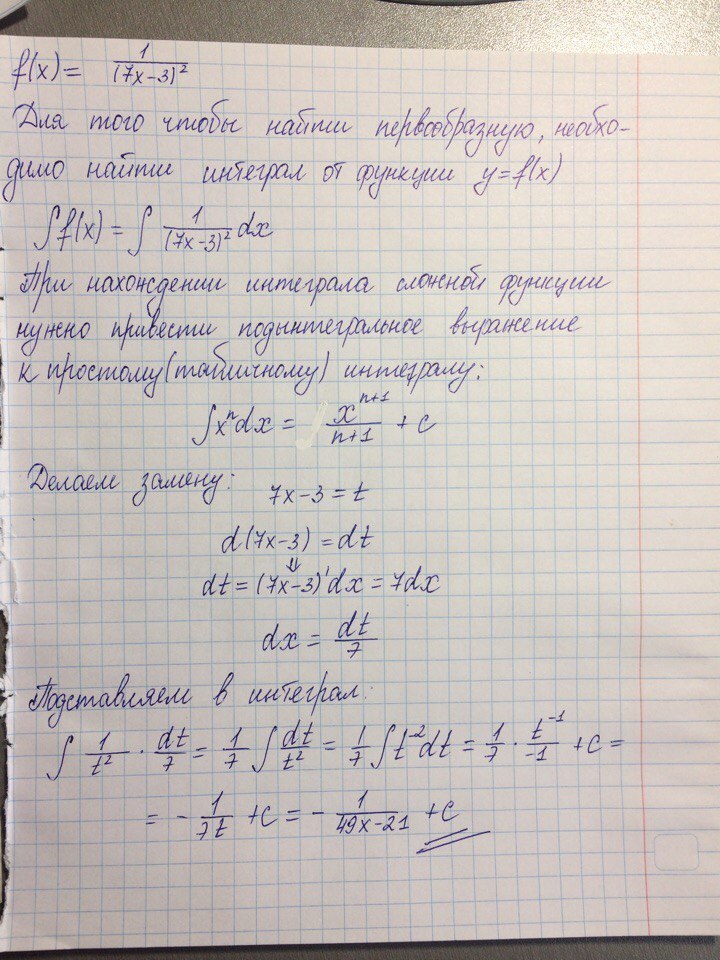 f(x) = 1/(7x−3)²
Для того чтобы найти первообразную, необхо-
димо найти интеграл от функции y=f(x)
∫f(x) = ∫ 1/(7x−3)² dx
При нахождении интеграла сложной функции
нужно привести подынтегральное выражение
к простому (табличному) интегралу:
∫xⁿdx = xⁿ⁺¹/(n+1) + c
Делаем замену: 7x−3 = t
d(7x−3) = dt
⇓
dt = (7x−3)'dx = 7dx
dx = dt/7
Подставляем в интеграл:
∫ 1/t² · dt/7 = 1/7 ∫ dt/t² = 1/7 ∫t⁻²dt = 1/7 · t⁻¹/−1 + c =
= − 1/7t + c = − 1/(49x−21) + c